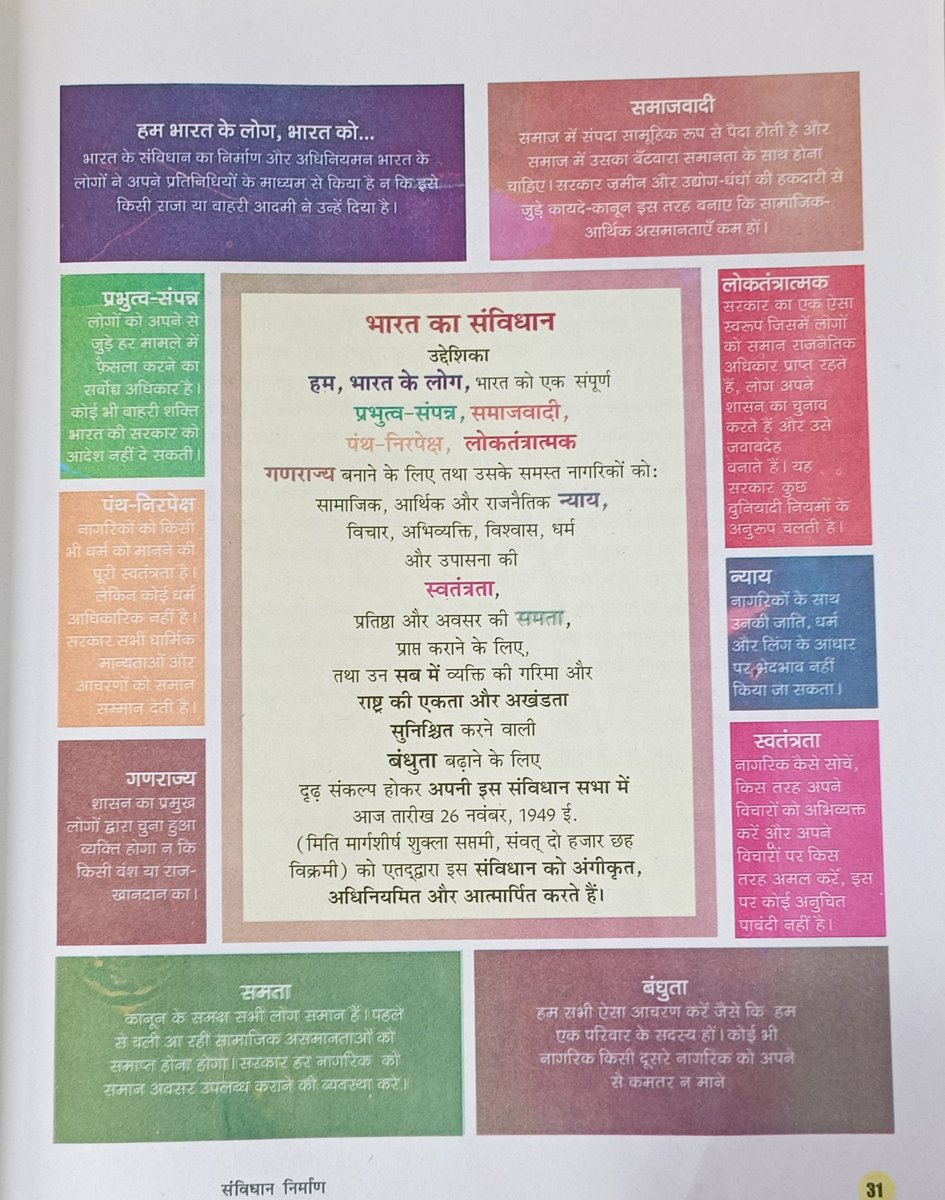 हम भारत के लोग, भारत को...
भारत के संविधान का निर्माण और अधिनियमन भारत के
लोगों ने अपने प्रतिनिधियों के माध्यम से किया है न कि इसे
किसी राजा या बाहरी आदमी ने उन्हें दिया है।
समाजवादी
समाज में संपदा सामूहिक रूप से पैदा होती है और
समाज में उसका बँटवारा समानता के साथ होना
चाहिए। सरकार ज़मीन और उद्योग-धंधों की हकदारी से
जुड़े कायदे-कानून इस तरह बनाए कि सामाजिक-
आर्थिक असमानताएँ कम हों।
प्रभुत्व-संपन्न
लोगों को अपने से
जुड़े हर मामले में
फ़ैसला करने का
सर्वोच्च अधिकार है।
कोई भी बाहरी शक्ति
भारत की सरकार को
आदेश नहीं दे सकती।
पंथ-निरपेक्ष
नागरिकों को किसी
भी धर्म को मानने की
पूरी स्वतंत्रता है।
लेकिन कोई धर्म
आधिकारिक नहीं है।
सरकार सभी धार्मिक
मान्यताओं और
आचरणों को समान
सम्मान देती है।
गणराज्य
शासन का प्रमुख
लोगों द्वारा चुना हुआ
व्यक्ति होगा न कि
किसी वंश या राज-
खानदान का।
भारत का संविधान
उद्देशिका
हम, भारत के लोग, भारत को एक संपूर्ण
प्रभुत्व-संपन्न, समाजवादी,
पंथ-निरपेक्ष, लोकतंत्रात्मक
गणराज्य बनाने के लिए तथा उसके समस्त नागरिकों को:
सामाजिक, आर्थिक और राजनैतिक न्याय,
विचार, अभिव्यक्ति, विश्वास, धर्म
और उपासना की
स्वतंत्रता,
प्रतिष्ठा और अवसर की समता,
प्राप्त कराने के लिए,
तथा उन सब में व्यक्ति की गरिमा और
राष्ट्र की एकता और अखंडता
सुनिश्चित करने वाली
बंधुता बढ़ाने के लिए
दृढ़ संकल्प होकर अपनी इस संविधान सभा में
आज तारीख 26 नवंबर, 1949 ई.
(मिति मार्गशीर्ष शुक्ला सप्तमी, संवत् दो हजार छह
विक्रमी) को एतद्द्वारा इस संविधान को अंगीकृत,
अधिनियमित और आत्मार्पित करते हैं।
लोकतंत्रात्मक
सरकार का एक ऐसा
स्वरूप जिसमें लोगों
को समान राजनैतिक
अधिकार प्राप्त रहते
हैं, लोग अपने
शासन का चुनाव
करते हैं और उसे
जवाबदेह
बनाते हैं। यह
सरकार कुछ
बुनियादी नियमों के
अनुरूप चलती है।
न्याय
नागरिकों के साथ
उनकी जाति, धर्म
और लिंग के आधार
पर भेदभाव नहीं
किया जा सकता।
स्वतंत्रता
नागरिक कैसे सोचें,
किस तरह अपने
विचारों को अभिव्यक्त
करें और अपने
विचारों पर किस
तरह अमल करें, इस
पर कोई अनुचित
पाबंदी नहीं है।
समता
कानून के समक्ष सभी लोग समान हैं। पहले
से चली आ रही सामाजिक असमानताओं को
समाप्त होना होगा। सरकार हर नागरिक को
समान अवसर उपलब्ध कराने की व्यवस्था करे।
बंधुता
हम सभी ऐसा आचरण करें जैसे कि हम
एक परिवार के सदस्य हों। कोई भी
नागरिक किसी दूसरे नागरिक को अपने
से कमतर न माने
संविधान निर्माण
31